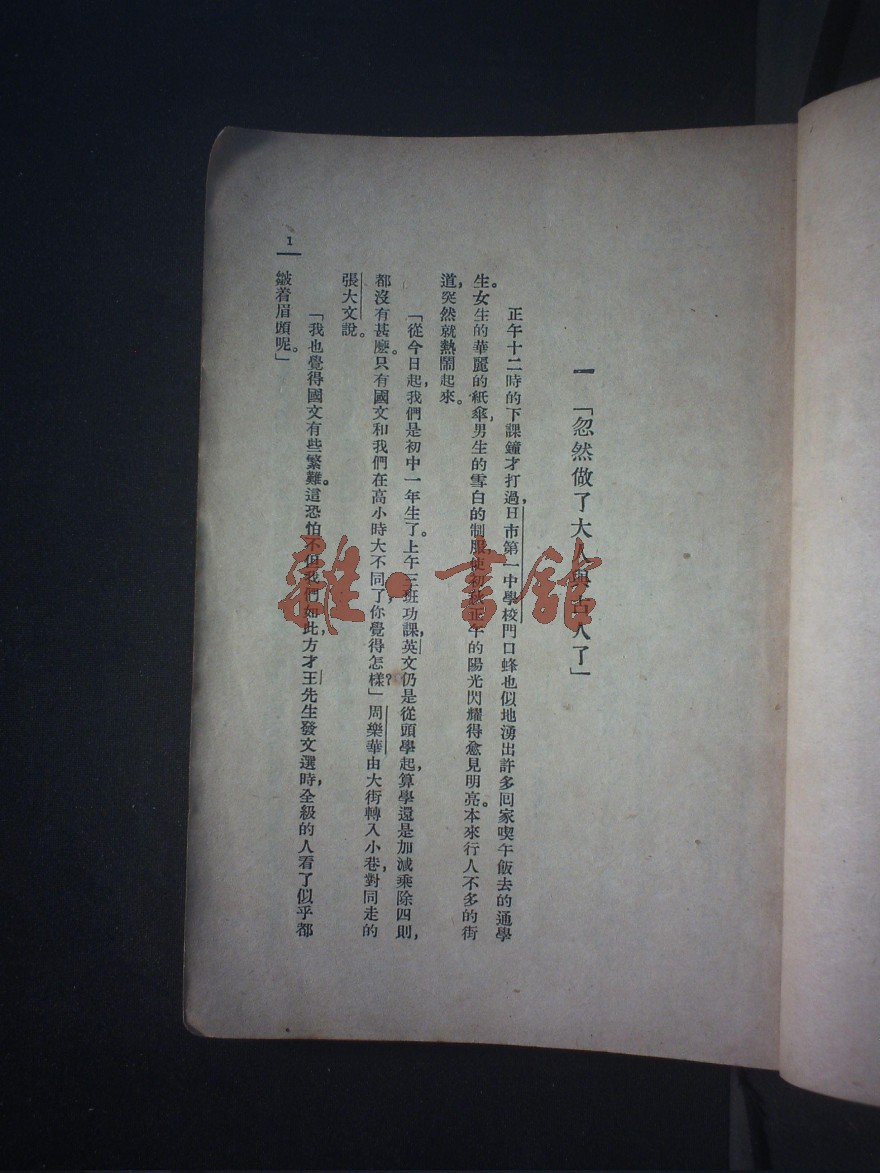 一 「忽然做了大人與古人了」
正午十二時的下課鐘才打過，日市第一中學校門口蜂也似地湧出許多回家喫午飯去的通學
生。女生的華麗的紙傘，男生的雪白的制服，使初秋正午的陽光閃耀得愈見明亮。本來行人不多的街
道，突然就熱鬧起來。
「從今日起，我們是初中一年生了。上午三班功課，英文仍是從頭學起，算學還是加減乘除四則，
都沒有甚麼。只有國文和我們在高小時大不同了，你覺得怎樣？」周樂華由大街轉入小巷，對同走的
張大文說。
「我也覺得國文有些繁難。這恐怕不但我們如此，方才王先生發文選時，全級的人看了似乎都
皺着眉頭呢。」
1
雜·書館